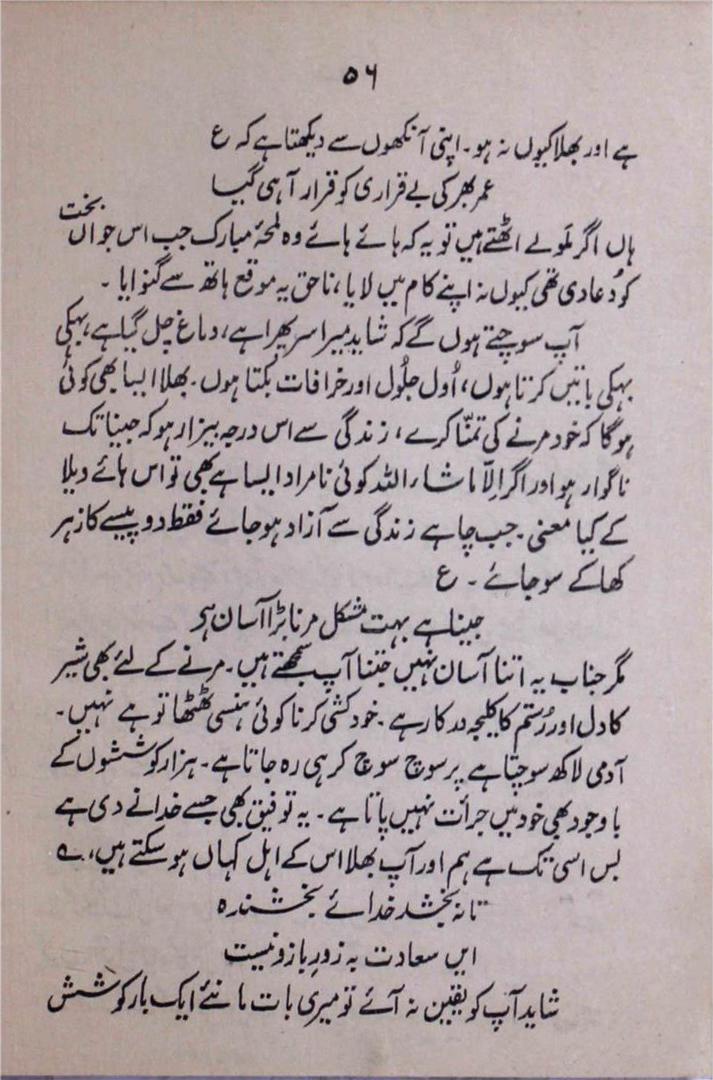 ۵۶
ہے اور بھلا کیوں نہ ہو۔ اپنی آنکھوں سے دیکھتا ہے کہ ع
عمر بھر کی بے قراری کو قرار آ ہی گیا
ہاں اگر ہَولے اٹھتے ہیں تو یہ کہ ہائے ہائے وہ لمحۂ مبارک جب اس جواں بخت
کو دُعا دی تھی کیوں نہ اپنے کام میں لایا، ناحق یہ موقع ہاتھ سے گنوایا۔
آپ سوچتے ہوں گے کہ شاید میرا سر پھرا ہے، دماغ چل گیا ہے، بہکی
بہکی باتیں کرتا ہوں، اُول جلُول اور خرافات بکتا ہوں۔ بھلا ایسا بھی کوئی
ہوگا کہ خود مرنے کی تمنّا کرے، زندگی سے اس درجہ بیزار ہو کہ جینا تک
ناگوار ہو اور اگر اِلّا ماشاء اللہ کوئی نامراد ایسا ہے بھی تو اس ہائے ویلا
کے کیا معنی۔ جب چاہے زندگی سے آزاد ہو جائے فقط دو پیسے کا زہر
کھا کے سو جائے۔ ع
جینا ہے بہت مشکل مرنا بڑا آسان ہے
مگر جناب یہ اتنا آسان نہیں جتنا آپ سمجھتے ہیں۔ مرنے کے لئے بھی شیر
کا دل اور رُستم کا کلیجہ درکار ہے۔ خودکشی کرنا کوئی ہنسی ٹھٹھا تو ہے نہیں۔
آدمی لاکھ سوچتا ہے پر سوچ سوچ کر ہی رہ جاتا ہے۔ ہزار کوششوں کے
باوجود بھی خود میں جرأت نہیں پاتا ہے۔ یہ توفیق بھی جسے خدا نے دی ہے
بس اسی تک ہے ہم اور آپ بھلا اس کے اہل کہاں ہو سکتے ہیں، ؎
تا نہ بخشد خدائے بخشندہ
ایں سعادت بہ زورِ بازو نیست
شاید آپ کو یقین نہ آئے تو میری بات مانئے ایک بار کوشش